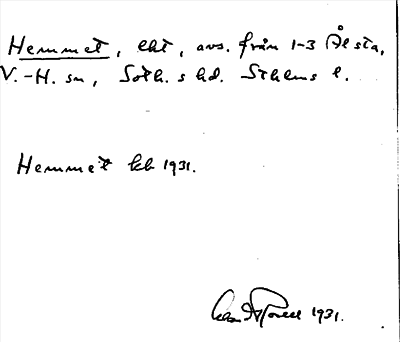 Hemmet, lht, avs. från 1-3 Ålsta,
V.-H. sn, Soth. s hd. Sthlms l.
Hemmet kb 1931.
1931.